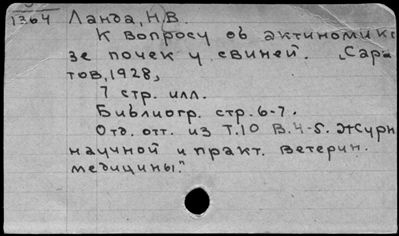 1364 Ланда, Н.В.
К вопросу об актиномико
зе почек у свиней. „Сара
тов, 1928,
7 стр. илл.
Библиогр. стр. 6-7.
Отд. отт. из Т.10 В.4-5. Журн
научной и практ. ветерин.
медицины."